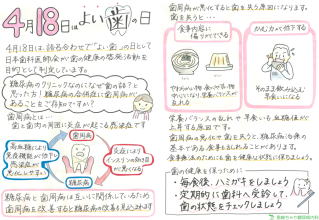 4月18日はよい歯の日
4月18日は、語呂合わせで「よい歯」の日として
日本歯科医師会が歯の健康の啓発活動を
目的として制定しています。
糖尿病のクリニックなのになぜ歯の話？と
思った方！糖尿病の合併症に歯周病が
あることをご存知ですか？
歯周病とは…
歯と歯肉の周囲に炎症が起こる感染症です
歯周病
高血糖により
免疫機能が低下し
感染症が
悪化しやすい
炎症により
インスリンの効き目
が悪くなる
糖尿病
歯周病と糖尿病は互いに関係しているため
歯周病を改善すると糖尿病の改善も見込めます
歯周病が悪化すると歯を失う原因になります。
歯を失うと…
食事内容に
偏りができる
かむ力が低下する
やわらかい物
栄養バランスが
乱れる
そのまま飲み込むと
早食いになる
栄養バランスの乱れや早食いも血糖値が
上昇する原因です。
歯周病は悪化で歯を失うと糖尿病治療の
基本である食事も乱れることがあります。
食事療法のためにも歯を健康な状態に保ちましょう。
歯の健康を保つために
・毎食後、ハミガキをしましょう
・定期的に歯科へ受診して、
歯の状態をチェックしましょう